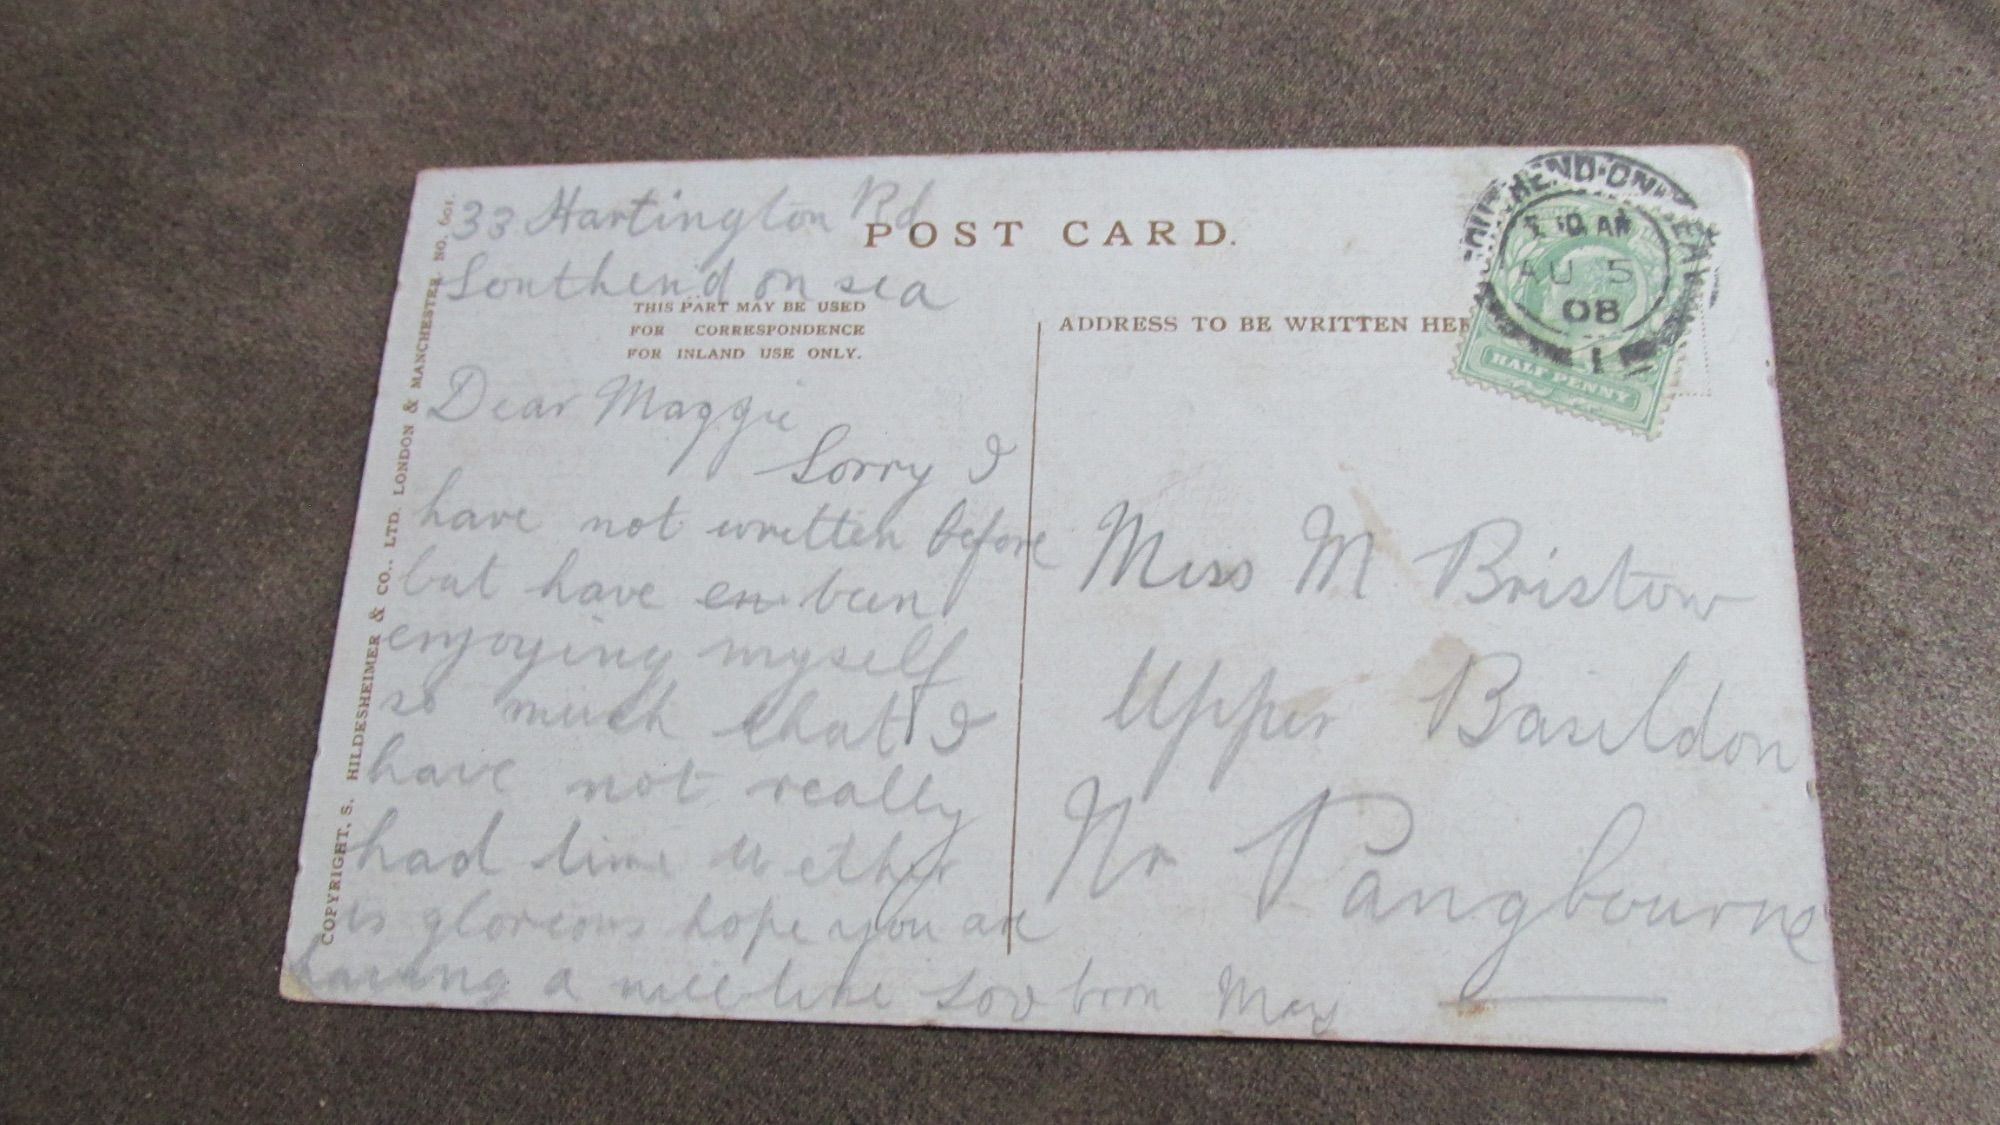 33 Hartington Rd
Southend on sea
POST CARD.
THIS PART MAY BE USED
FOR CORRESPONDENCE
FOR INLAND USE ONLY.
Dear Maggie
Sorry I
have not written before
but have en been
enjoying myself
so much that I
have not really
had time
is glorious hope you are
having a nice time from May
ADDRESS TO BE WRITTEN HER
Miss M Bristow
Upper Basildon
Nr Pangbourne
SOUTHEND-ON-SEA
AU 5
08
1
HALF PENNY
COPYRIGHT, S. HILDESHEIMER & CO., LTD. LONDON & MANCHESTER. NO. 601.